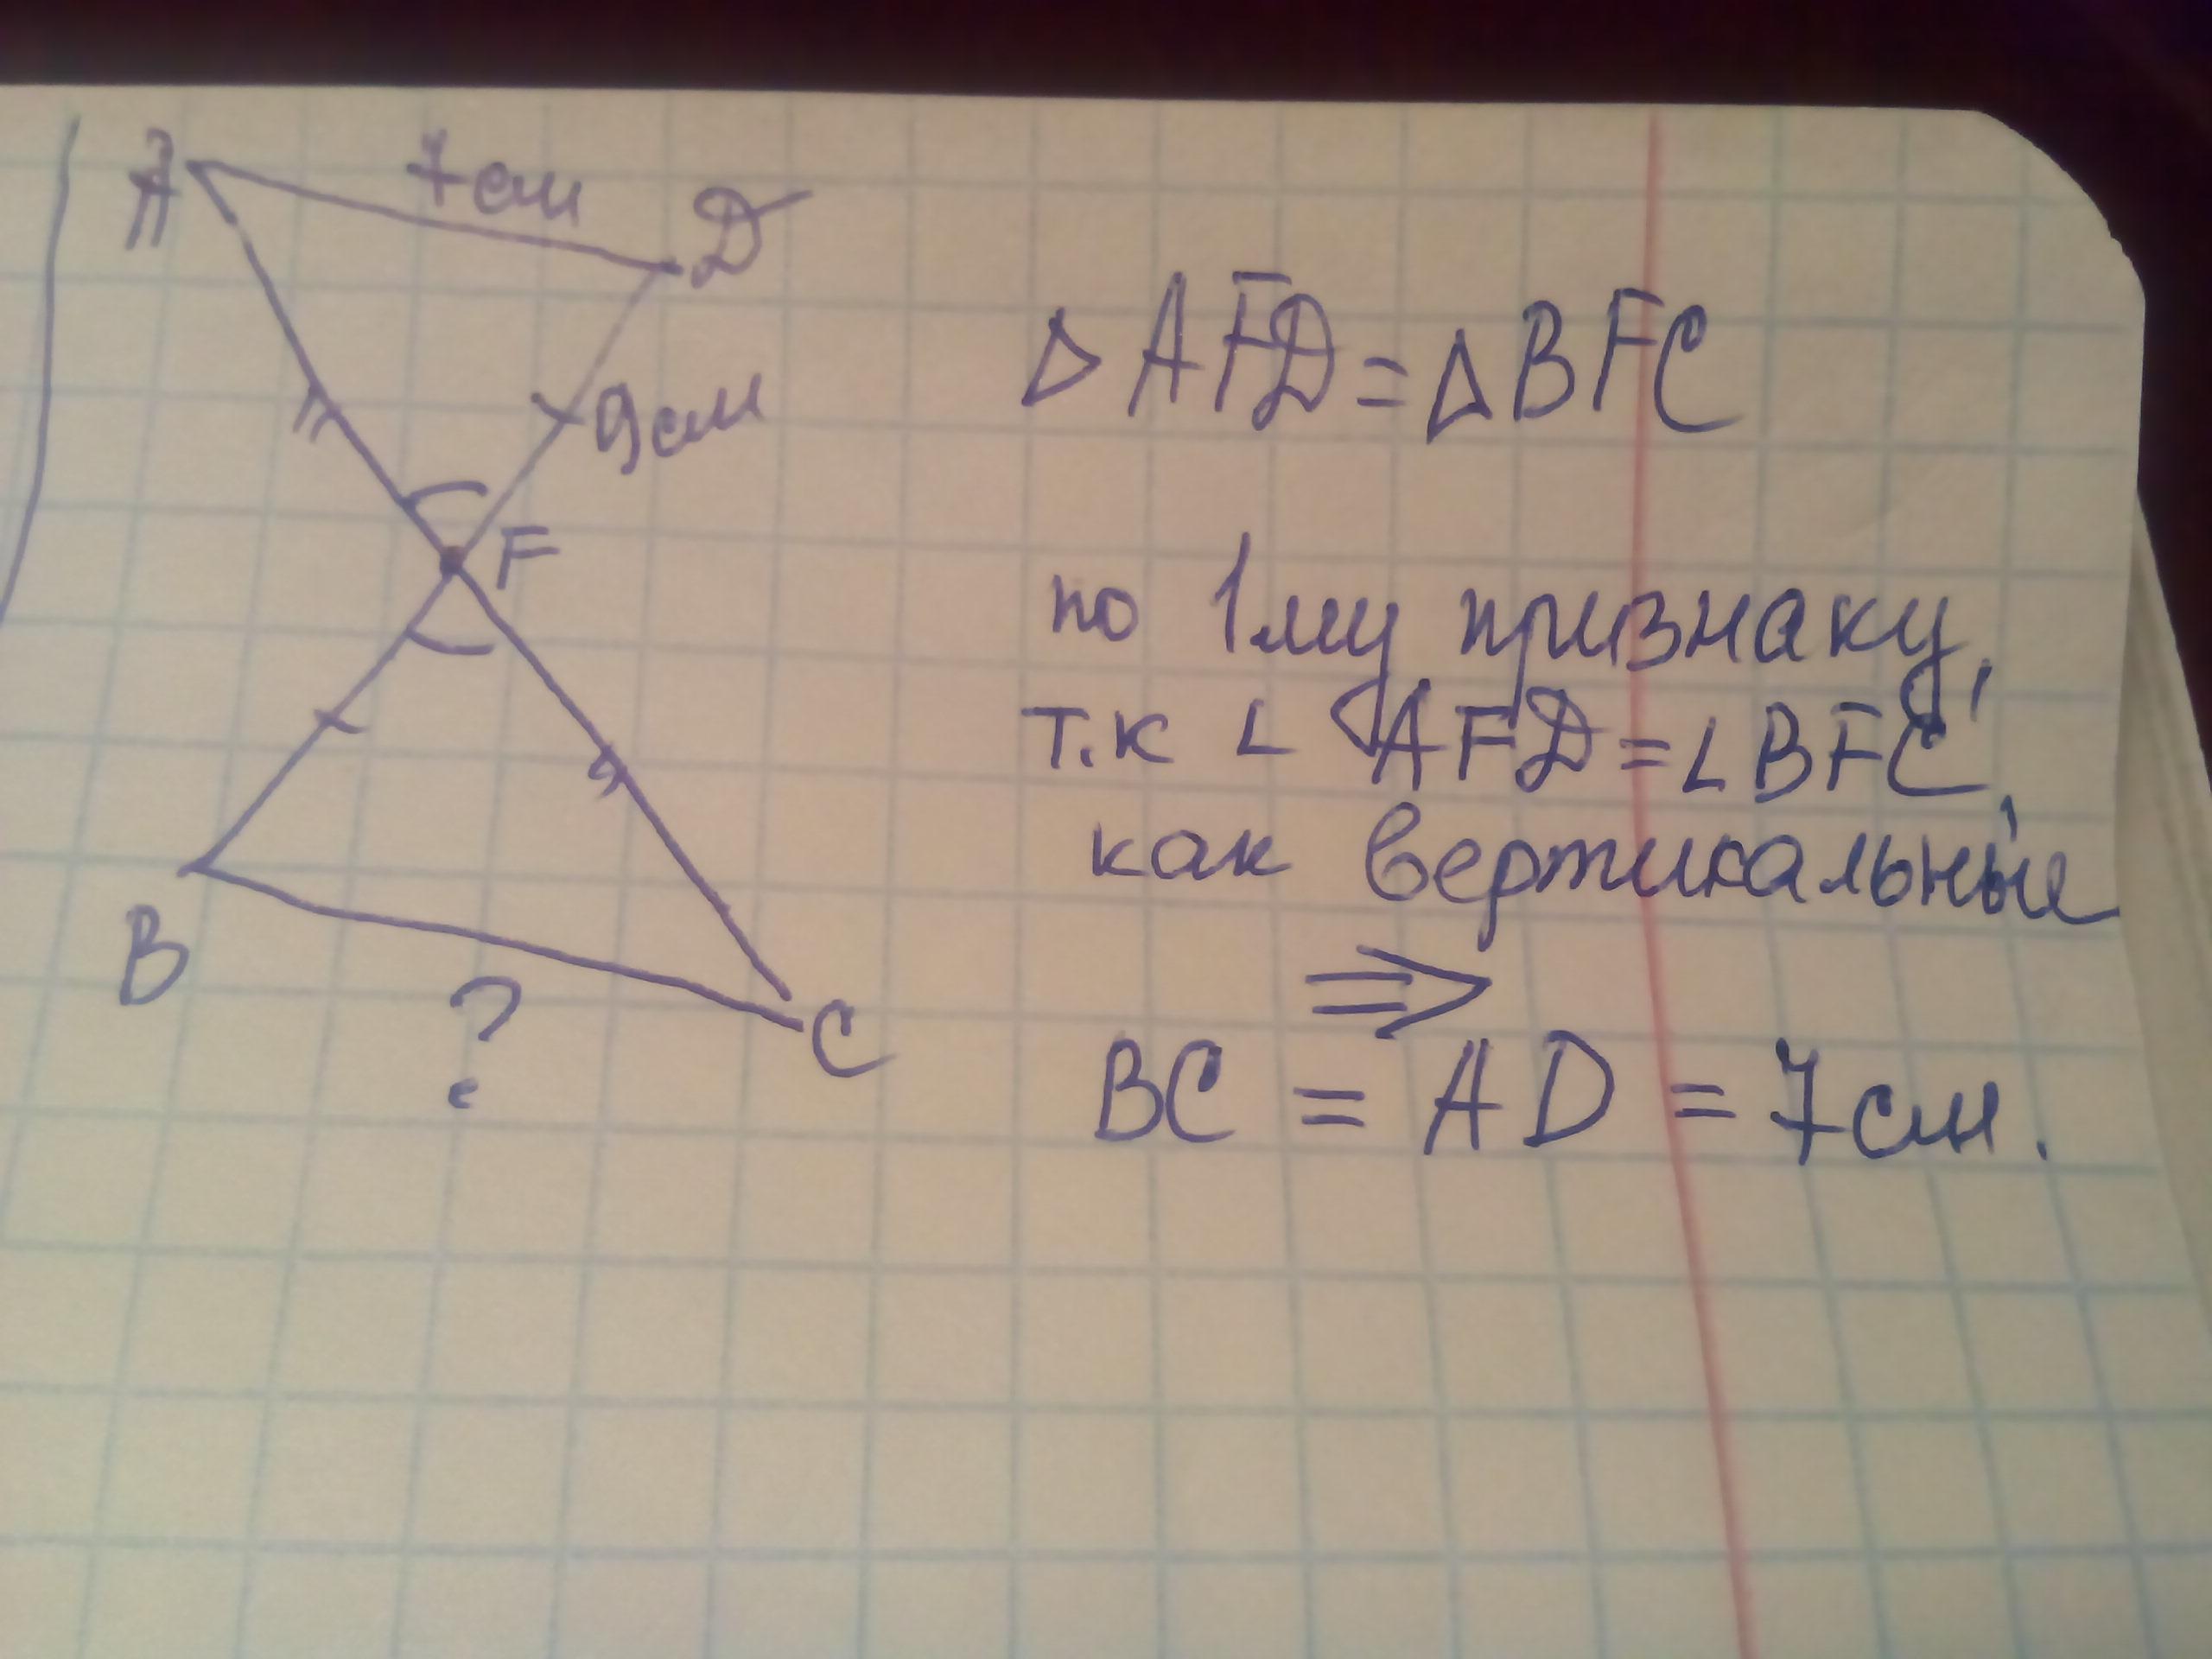 A
7см
D
9см
F
B
?
C
Δ AFD = Δ BFC
по 1му признаку,
т.к ∠ ∠AFD = ∠BFC,
как вертикальные
⇒
BC = AD = 7см.